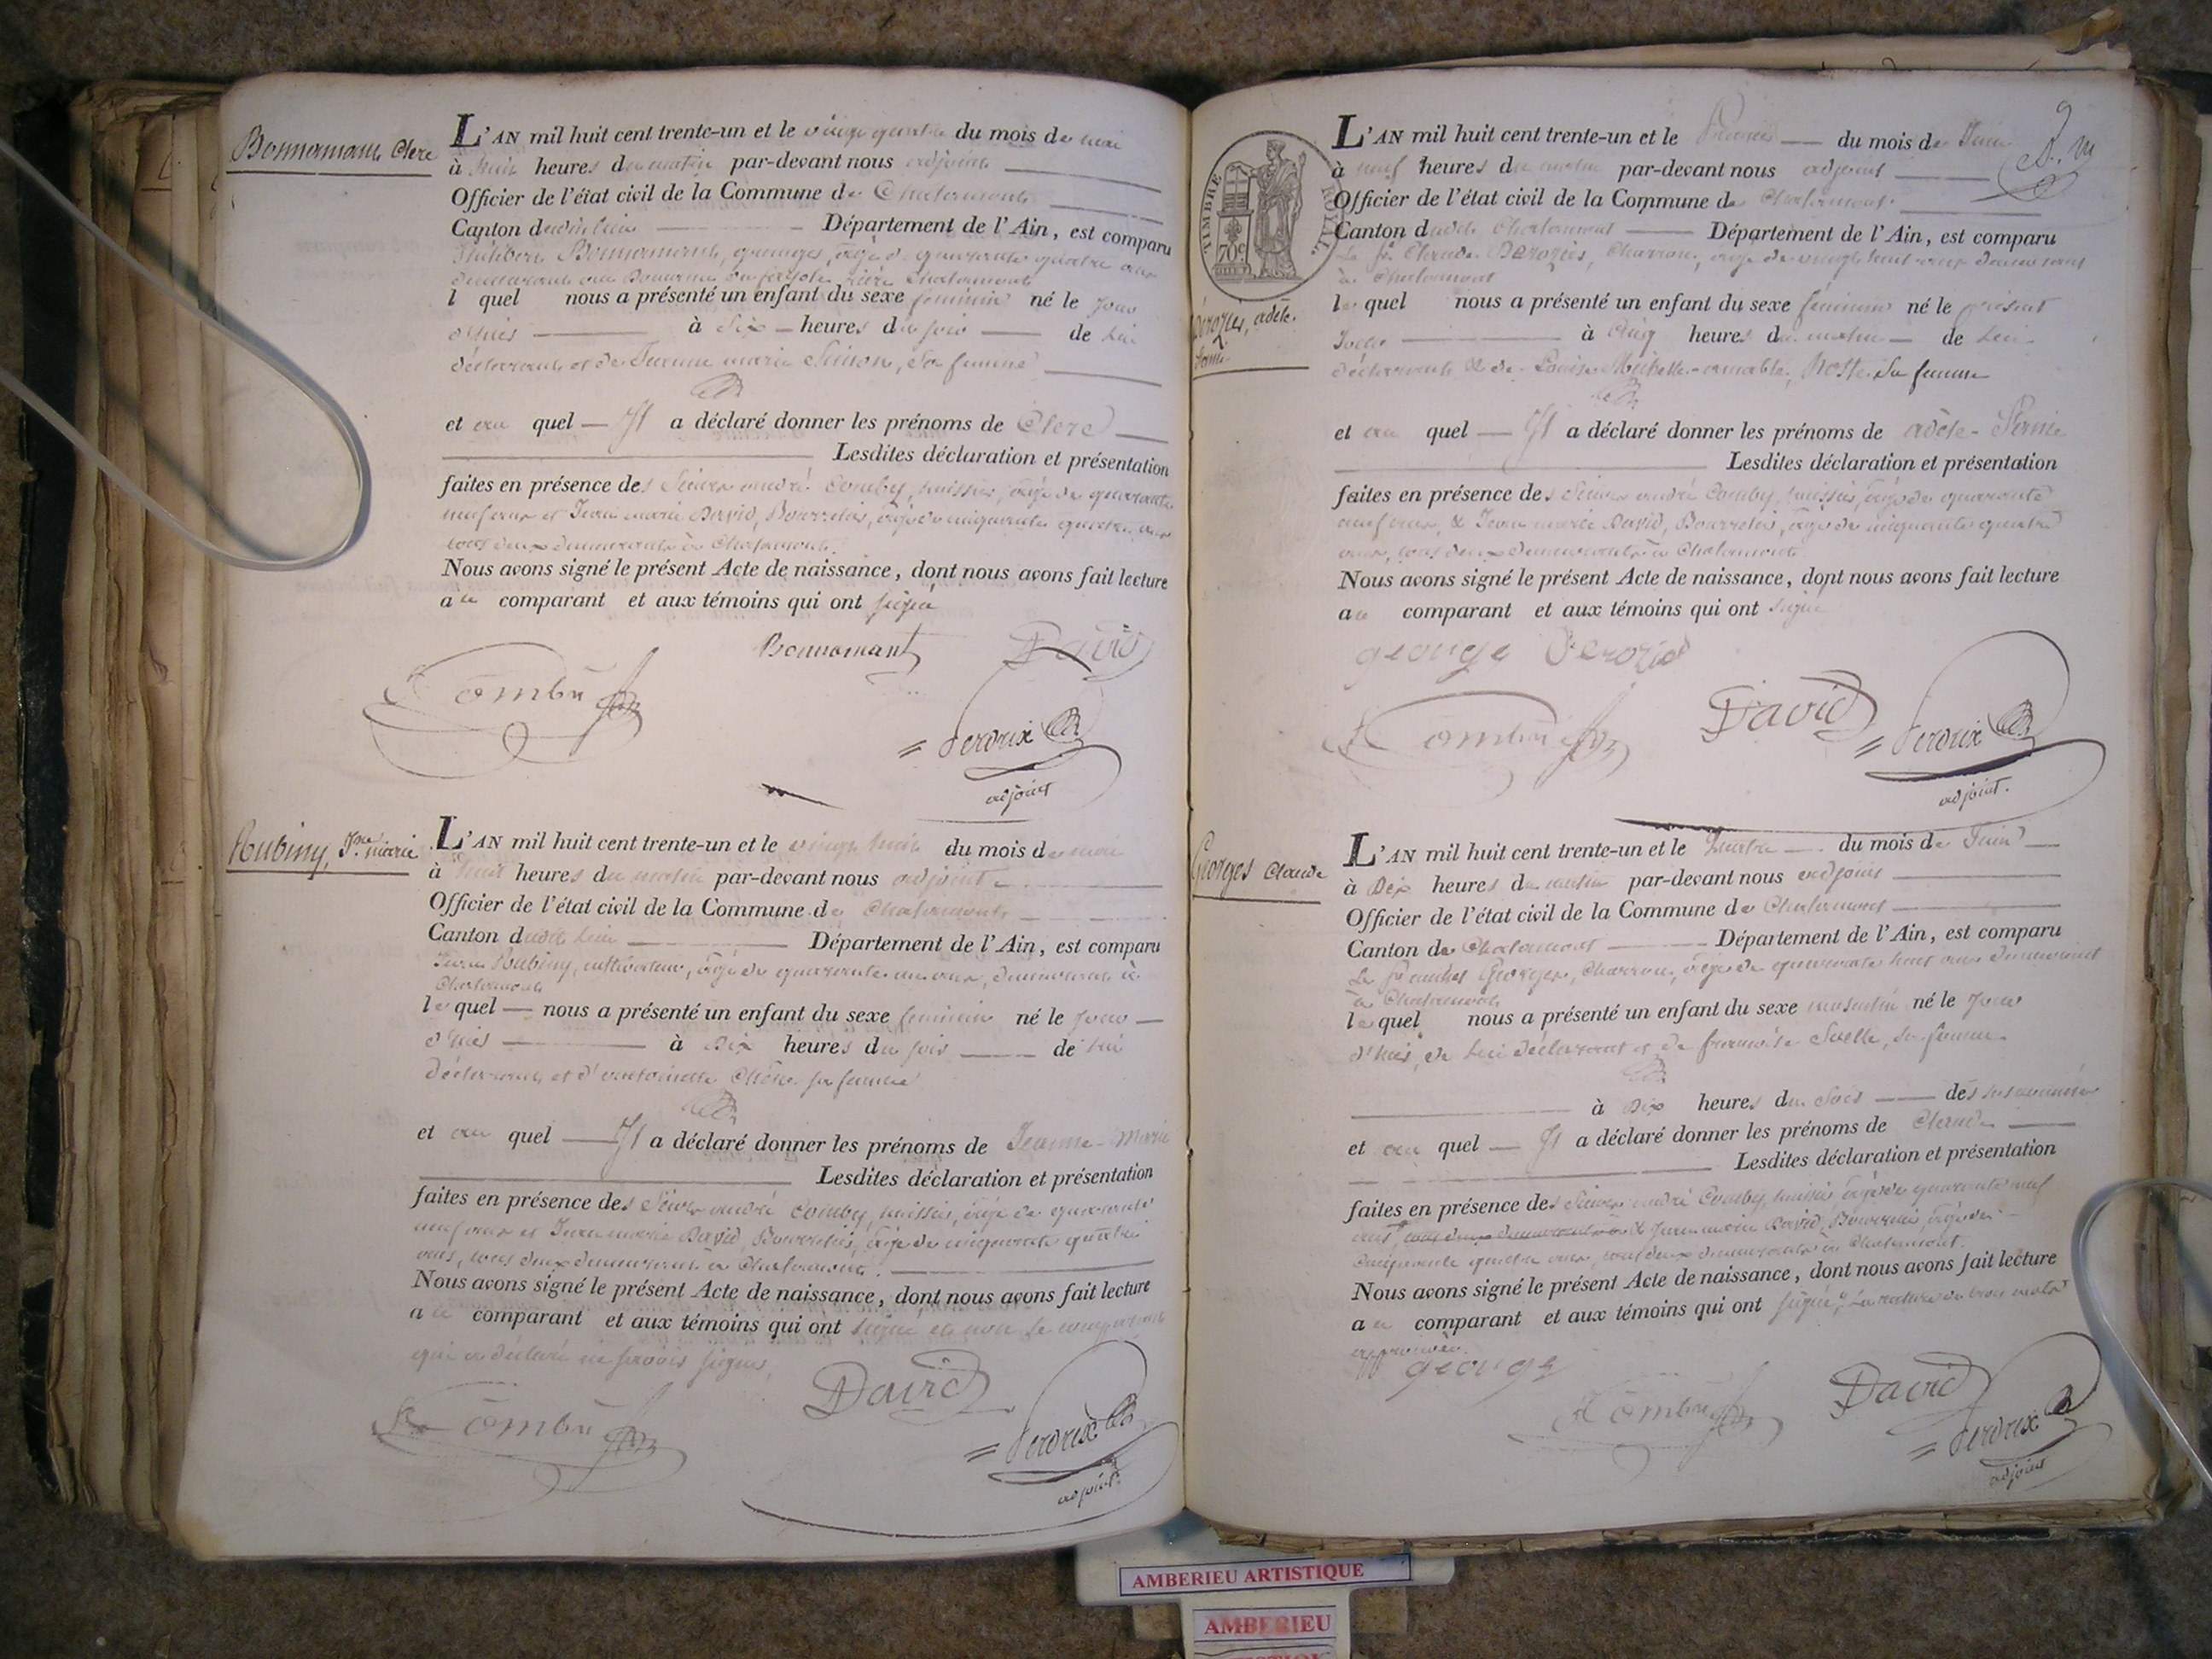 Bonnamant, Clere
L'AN mil huit cent trente-un et le vingt quatre du mois de mai
à huit heures du matin par-devant nous adjoint
Officier de l'état civil de la Commune de Chalamont
Canton dudit lieu Département de l'Ain, est comparu
Philibert Bonnamant, âgé de quarante quatre ans
demeurant Chalamont
l quel nous a présenté un enfant du sexe feminin né le jour
d'hier à Six heures du soir de Lui
déclarant et de Jeanne marie Simon, Sa femme
et au quel Il a déclaré donner les prénoms de Clere
Lesdites déclaration et présentation
faites en présence des Sieurs andré Comby, huissier, âgé de quarante
neuf ans et Jean marie David, Bourrelier, âgé de cinquante quatre ans
tous deux demeurants à Chalamont.
Nous avons signé le présent Acte de naissance, dont nous avons fait lecture
au comparant et aux témoins qui ont signé
Bonnamant David
Comby
Perdrix
adjoint
Rubiny, Jne marie
L'AN mil huit cent trente-un et le vingt huit du mois de mai
à huit heures du matin par-devant nous adjoint
Officier de l'état civil de la Commune de Chalamont
Canton dudit lieu Département de l'Ain, est comparu
Rubiny, cultivateur, âgé de quarante un ans, demeurant à
Chalamont
lequel nous a présenté un enfant du sexe feminin né le jour
d'hier à dix heures du soir de lui
déclarant et d'antoinette Chêne sa femme
et au quel Il a déclaré donner les prénoms de Jeanne-Marie
Lesdites déclaration et présentation
faites en présence des Sieurs andré Comby, huissier, âgé de quarante
neuf ans et Jean marie David, Bourrelier, âgé de cinquante quatre
ans, tous deux demeurants à Chalamont.
Nous avons signé le présent Acte de naissance, dont nous avons fait lecture
au comparant et aux témoins qui ont signé et non le comparant
qui a déclaré ne savoir signer,
David
Comby
Perdrix
adjoint.
9
TIMBRE ROYAL
70c
adèle
L'AN mil huit cent trente-un et le Premier du mois de Juin
à neuf heures du matin par-devant nous adjoint
Officier de l'état civil de la Commune de Chalamont
Canton dudit Chalamont Département de l'Ain, est comparu
Le Sr. Claude Derozier, Charron, âgé de vingt huit ans demeurant
à Chalamont
lequel nous a présenté un enfant du sexe féminin né le présent
Jour à Cinq heures du matin de Lui
déclarant & de Louise Michelle Sa femme
et au quel Il a déclaré donner les prénoms de adèle-
Lesdites déclaration et présentation
faites en présence des Sieurs andré Comby, huissier, âgé de quarante
neuf ans, & Jean marie David, Bourrelier, âgé de cinquante quatre
ans, tous deux demeurants à Chalamont
Nous avons signé le présent Acte de naissance, dont nous avons fait lecture
au comparant et aux témoins qui ont signé
george
Comby David Perdrix
adjoint.
Georges Claude
L'AN mil huit cent trente-un et le quatre du mois de Juin
à Dix heures du matin par-devant nous adjoint
Officier de l'état civil de la Commune de Chalamont
Canton de Chalamont Département de l'Ain, est comparu
Le Sr. Georges, Charron, âgé de quarante huit ans demeurant
à Chalamont
lequel nous a présenté un enfant du sexe masculin né le jour
d'hier, de Lui déclarant et de françoise sa femme
à Dix heures du Soir des susnommés
et au quel Il a déclaré donner les prénoms de Claude
Lesdites déclaration et présentation
faites en présence des Sieurs andré Comby, huissier, âgé de quarante neuf
ans tous deux demeurants à & Jean marie David, Bourrelier, âgé de
cinquante quatre ans, tous deux demeurants à Chalamont.
Nous avons signé le présent Acte de naissance, dont nous avons fait lecture
au comparant et aux témoins qui ont signé
george
Comby David
Perdrix
adjoint
AMBERIEU ARTISTIQUE
AMBERIEU